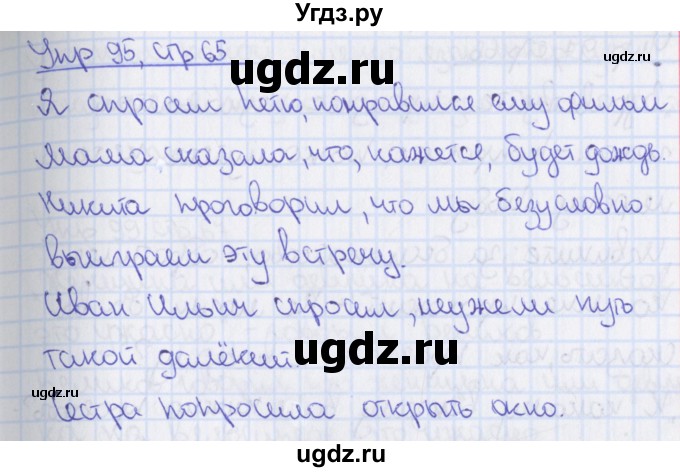 Угдз.ру
Упр 95, стр 65
ugdz.ru
Я спросил Петю, понравился ему фильм
Мама сказала, что, кажется, будет дождь.
ugdz.ru
Никита проговорил, что мы безусловно
выиграем эту встречу.
Иван Ильич спросил, неужели путь
такой далёкий.
ugdz.ru
ugdz.ru
Сестра попросила открыть окно.
ugdz.ru